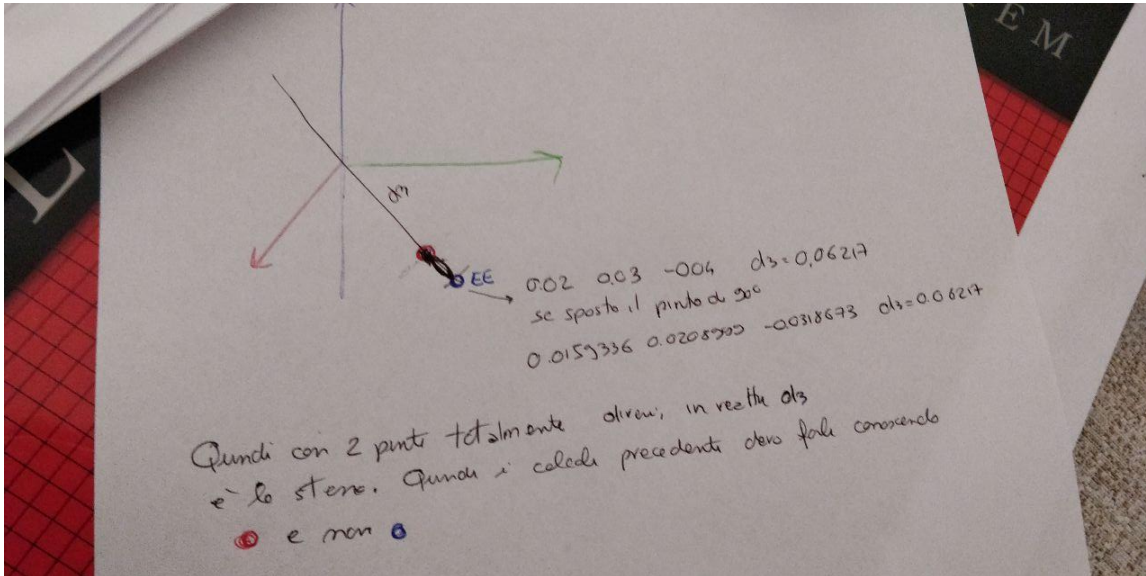 L
TEM
d3
EE
0.02 0.03 -0.04 d3=0,06217
se sposto il punto di 90°
0.0159336 0.0208999 -0.0318673 d3=0.06217
Quindi con 2 punti totalmente diversi, in realtà d3
è lo stesso. Quindi i calcoli precedenti devo farli conoscendo
e non